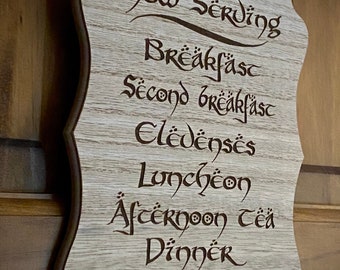 Now Serving
Breakfast
Second breakfast
Elevenses
Luncheon
Afternoon tea
Dinner